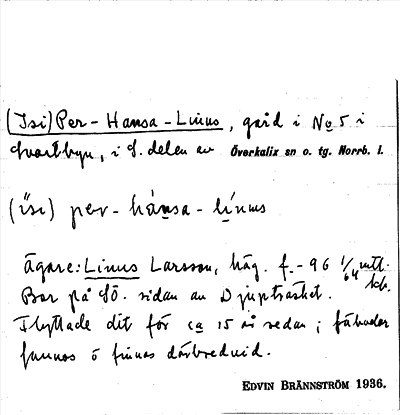 (Isi) Per-Hansa-Linus, gård i No 5 i
Svartbyn, i S. delen av Överkalix sn o. tg. Norrb. l.
(isi) per-hánsa-línus
Ägare: Linus Larsson, häg. f. -96 1/64 mtl.
Bor på SÖ. sidan av Djupträsket.
Flyttade dit för ca 15 år sedan; fäbodar
funnos o finnas därbredvid.
EDVIN BRÄNNSTRÖM 1936.